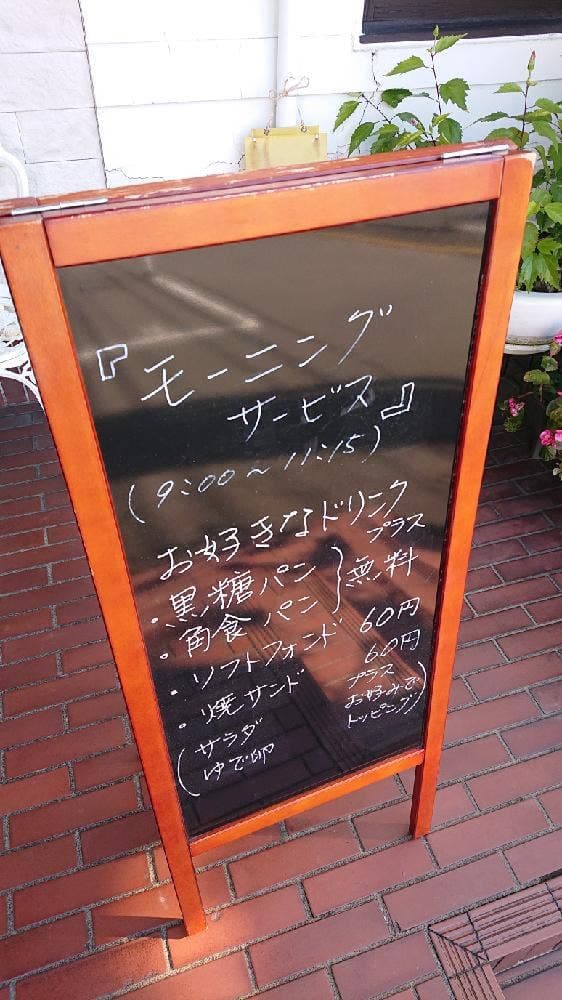 『モーニング
サービス』
(9:00~11:15)
お好きなドリンク
プラス
・黒糖パン
・角食パン } 無料
・ソフトフォンド 60円
・焼サンド 60円
(サラダ
ゆで卵
プラス
お好みで
トッピング)